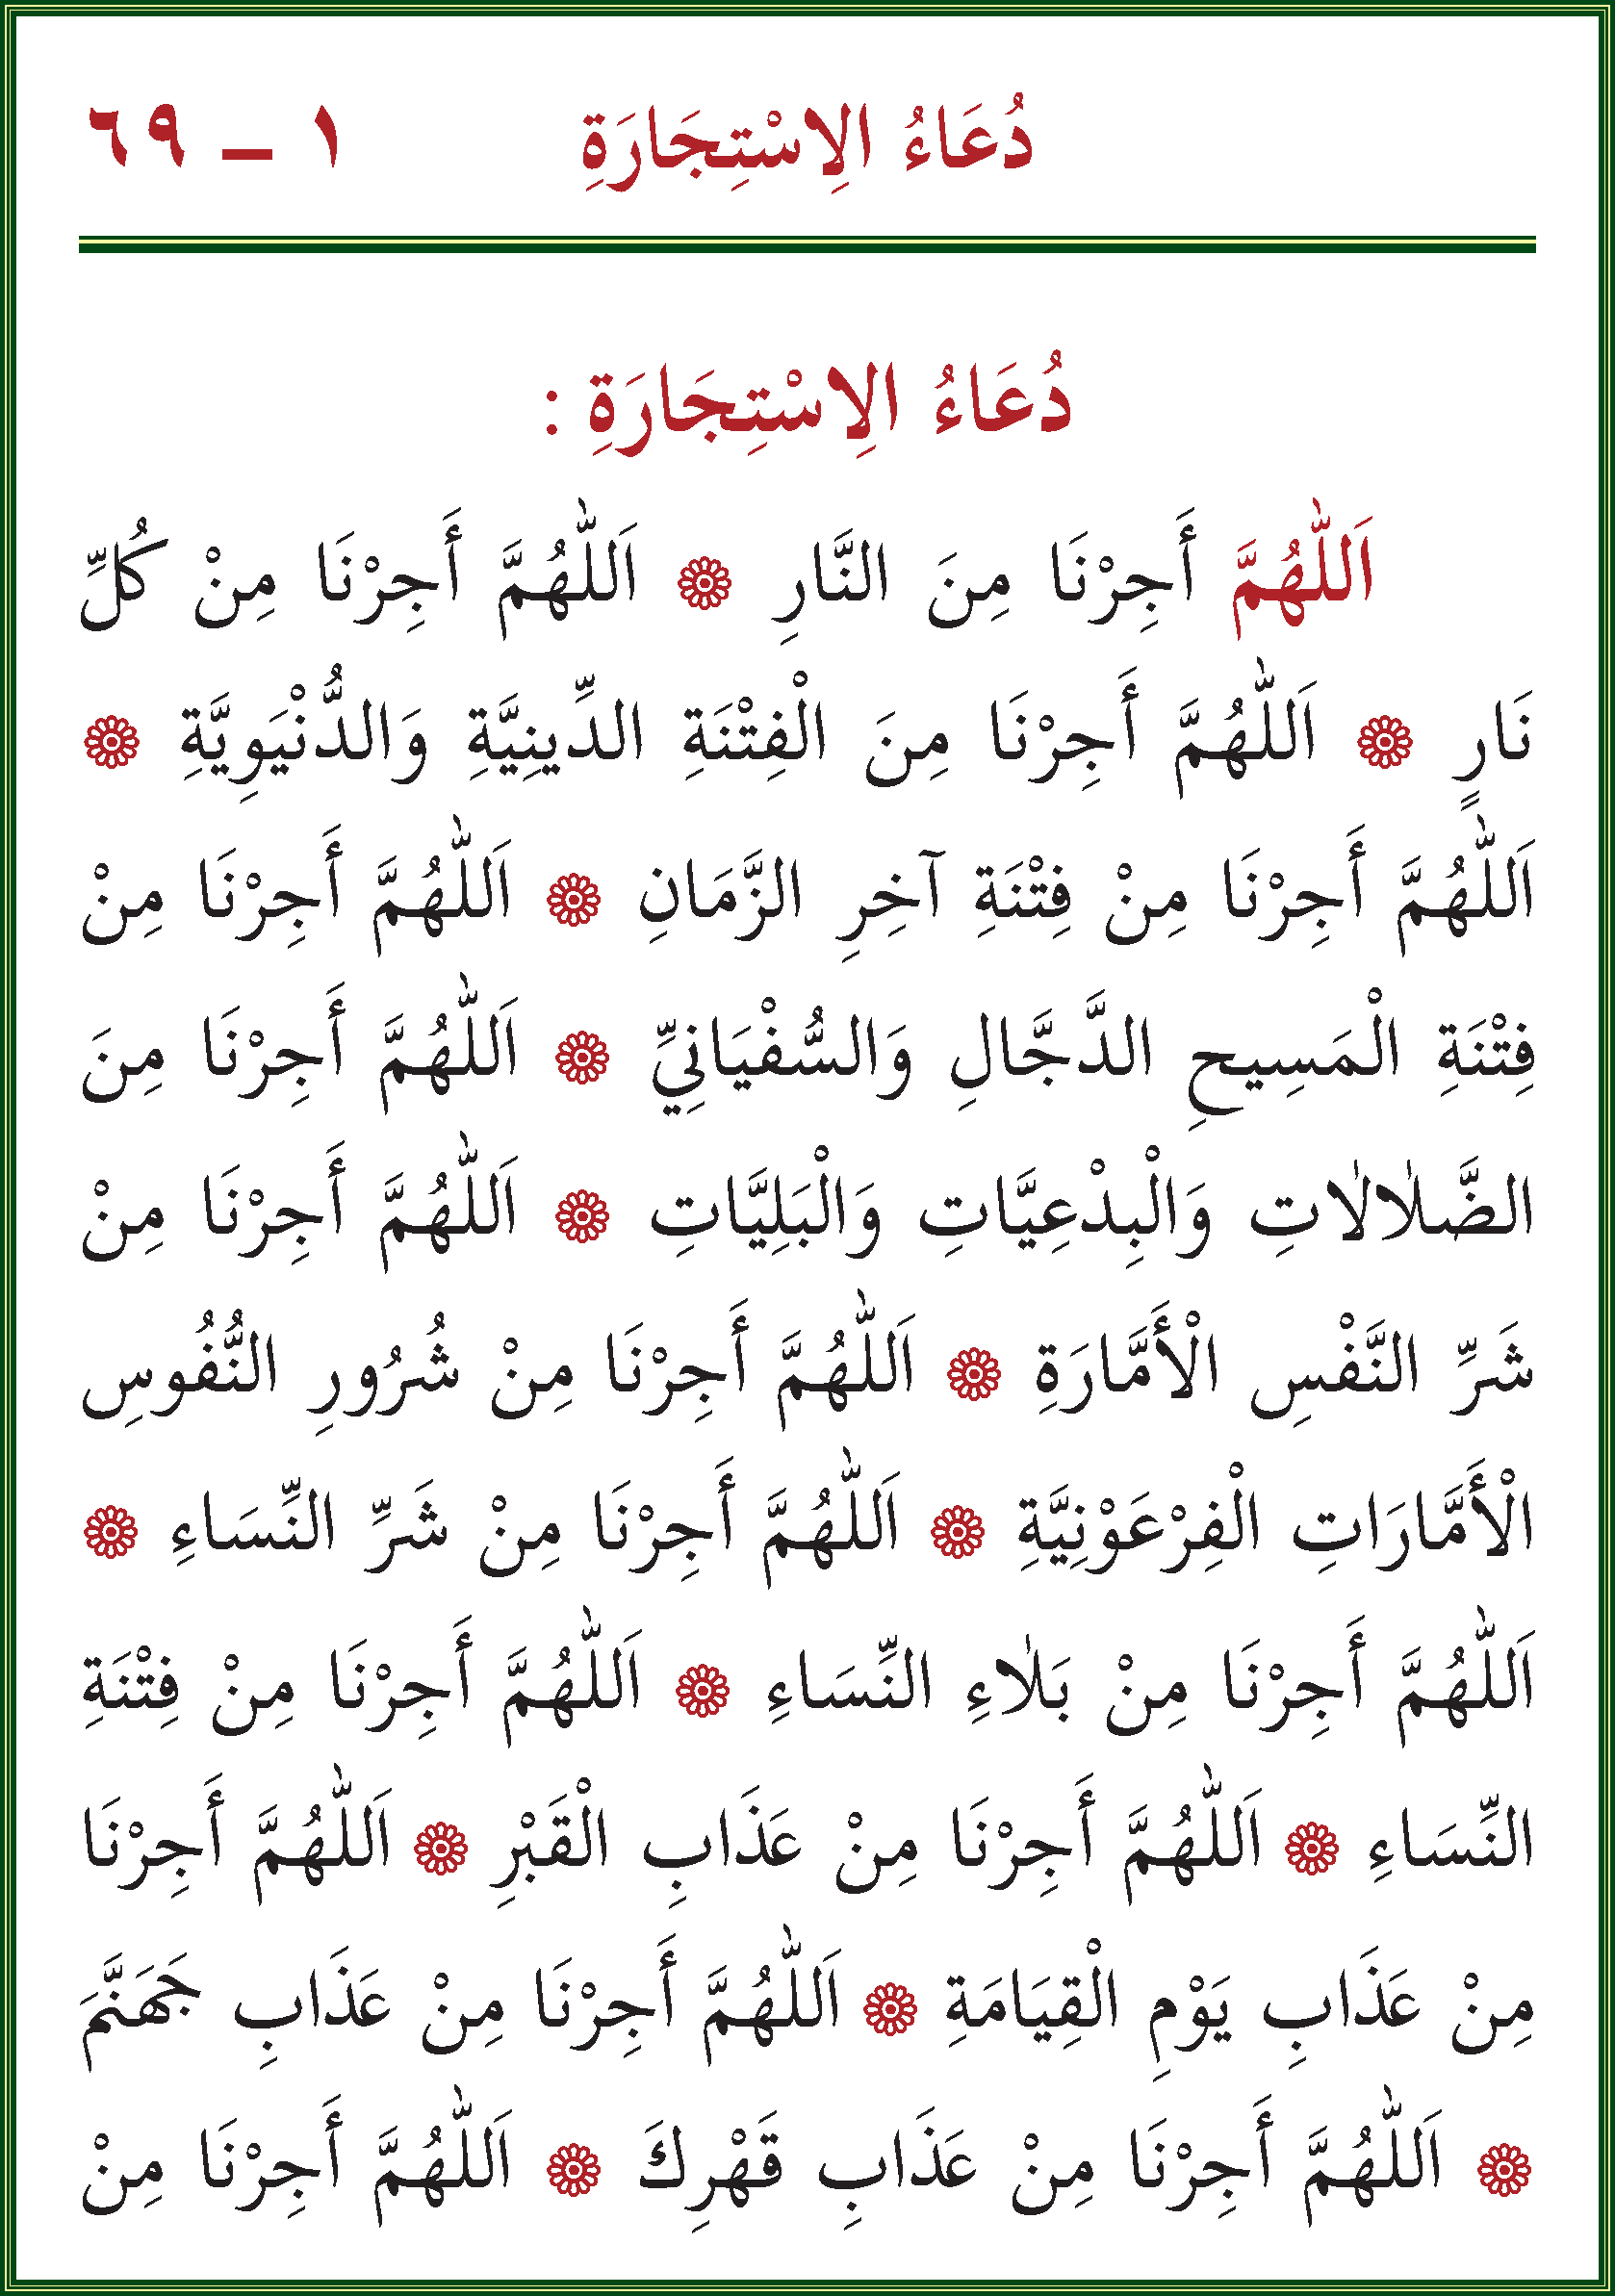 دُعَاءُ الِاسْتِجَارَةِ ١ – ٦٩
دُعَاءُ الِاسْتِجَارَةِ :
اَللّٰهُمَّ أَجِرْنَا مِنَ النَّارِ ۞ اَللّٰهُمَّ أَجِرْنَا مِنْ كُلِّ
نَارٍ ۞ اَللّٰهُمَّ أَجِرْنَا مِنَ الْفِتْنَةِ الدِّينِيَّةِ وَالدُّنْيَوِيَّةِ ۞
اَللّٰهُمَّ أَجِرْنَا مِنْ فِتْنَةِ آخِرِ الزَّمَانِ ۞ اَللّٰهُمَّ أَجِرْنَا مِنْ
فِتْنَةِ الْمَسِيحِ الدَّجَّالِ وَالسُّفْيَانِيِّ ۞ اَللّٰهُمَّ أَجِرْنَا مِنَ
الضَّلٰالٰاتِ وَالْبِدْعِيَّاتِ وَالْبَلِيَّاتِ ۞ اَللّٰهُمَّ أَجِرْنَا مِنْ
شَرِّ النَّفْسِ الْأَمَّارَةِ ۞ اَللّٰهُمَّ أَجِرْنَا مِنْ شُرُورِ النُّفُوسِ
الْأَمَّارَاتِ الْفِرْعَوْنِيَّةِ ۞ اَللّٰهُمَّ أَجِرْنَا مِنْ شَرِّ النِّسَاءِ ۞
اَللّٰهُمَّ أَجِرْنَا مِنْ بَلٰاءِ النِّسَاءِ ۞ اَللّٰهُمَّ أَجِرْنَا مِنْ فِتْنَةِ
النِّسَاءِ ۞ اَللّٰهُمَّ أَجِرْنَا مِنْ عَذَابِ الْقَبْرِ ۞ اَللّٰهُمَّ أَجِرْنَا
مِنْ عَذَابِ يَوْمِ الْقِيَامَةِ ۞ اَللّٰهُمَّ أَجِرْنَا مِنْ عَذَابِ جَهَنَّمَ
۞ اَللّٰهُمَّ أَجِرْنَا مِنْ عَذَابِ قَهْرِكَ ۞ اَللّٰهُمَّ أَجِرْنَا مِنْ